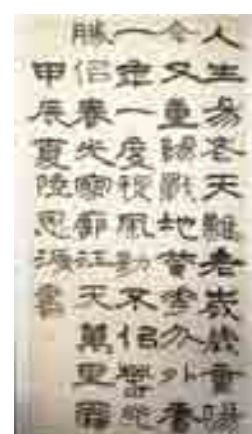 人生易老天難老歲歲重陽
今又重陽戰地黃花分外香
一年一度秋風勁不似春光
勝似春光寥廓江天萬里霜
甲辰夏陸思源書